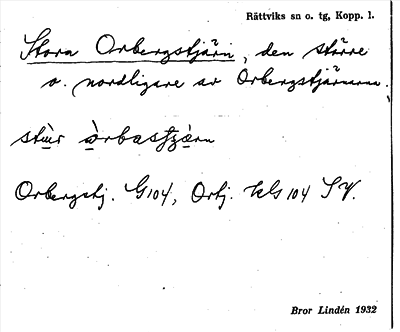 Rättviks sn o. tg, Kopp. l.
Stora Orbergstjärn, den större
o. nordligare av Orbergstjärnarna.
Orbergstj. G104, Ortj.
Bror Lindén 1932